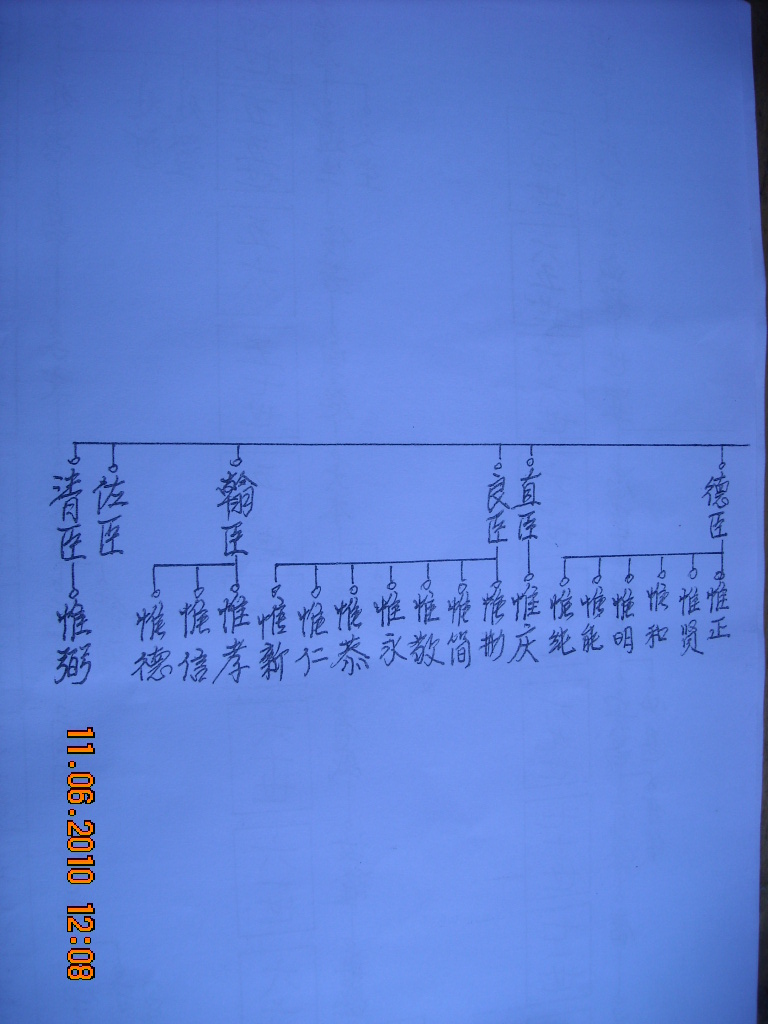 德臣
直臣
良臣
翰臣
佐臣
清臣
惟正
惟贤
惟和
惟明
惟能
惟纯
惟庆
惟勤
惟简
惟敬
惟永
惟恭
惟仁
惟新
惟孝
惟信
惟德
惟弼
11.06.2010 12:08